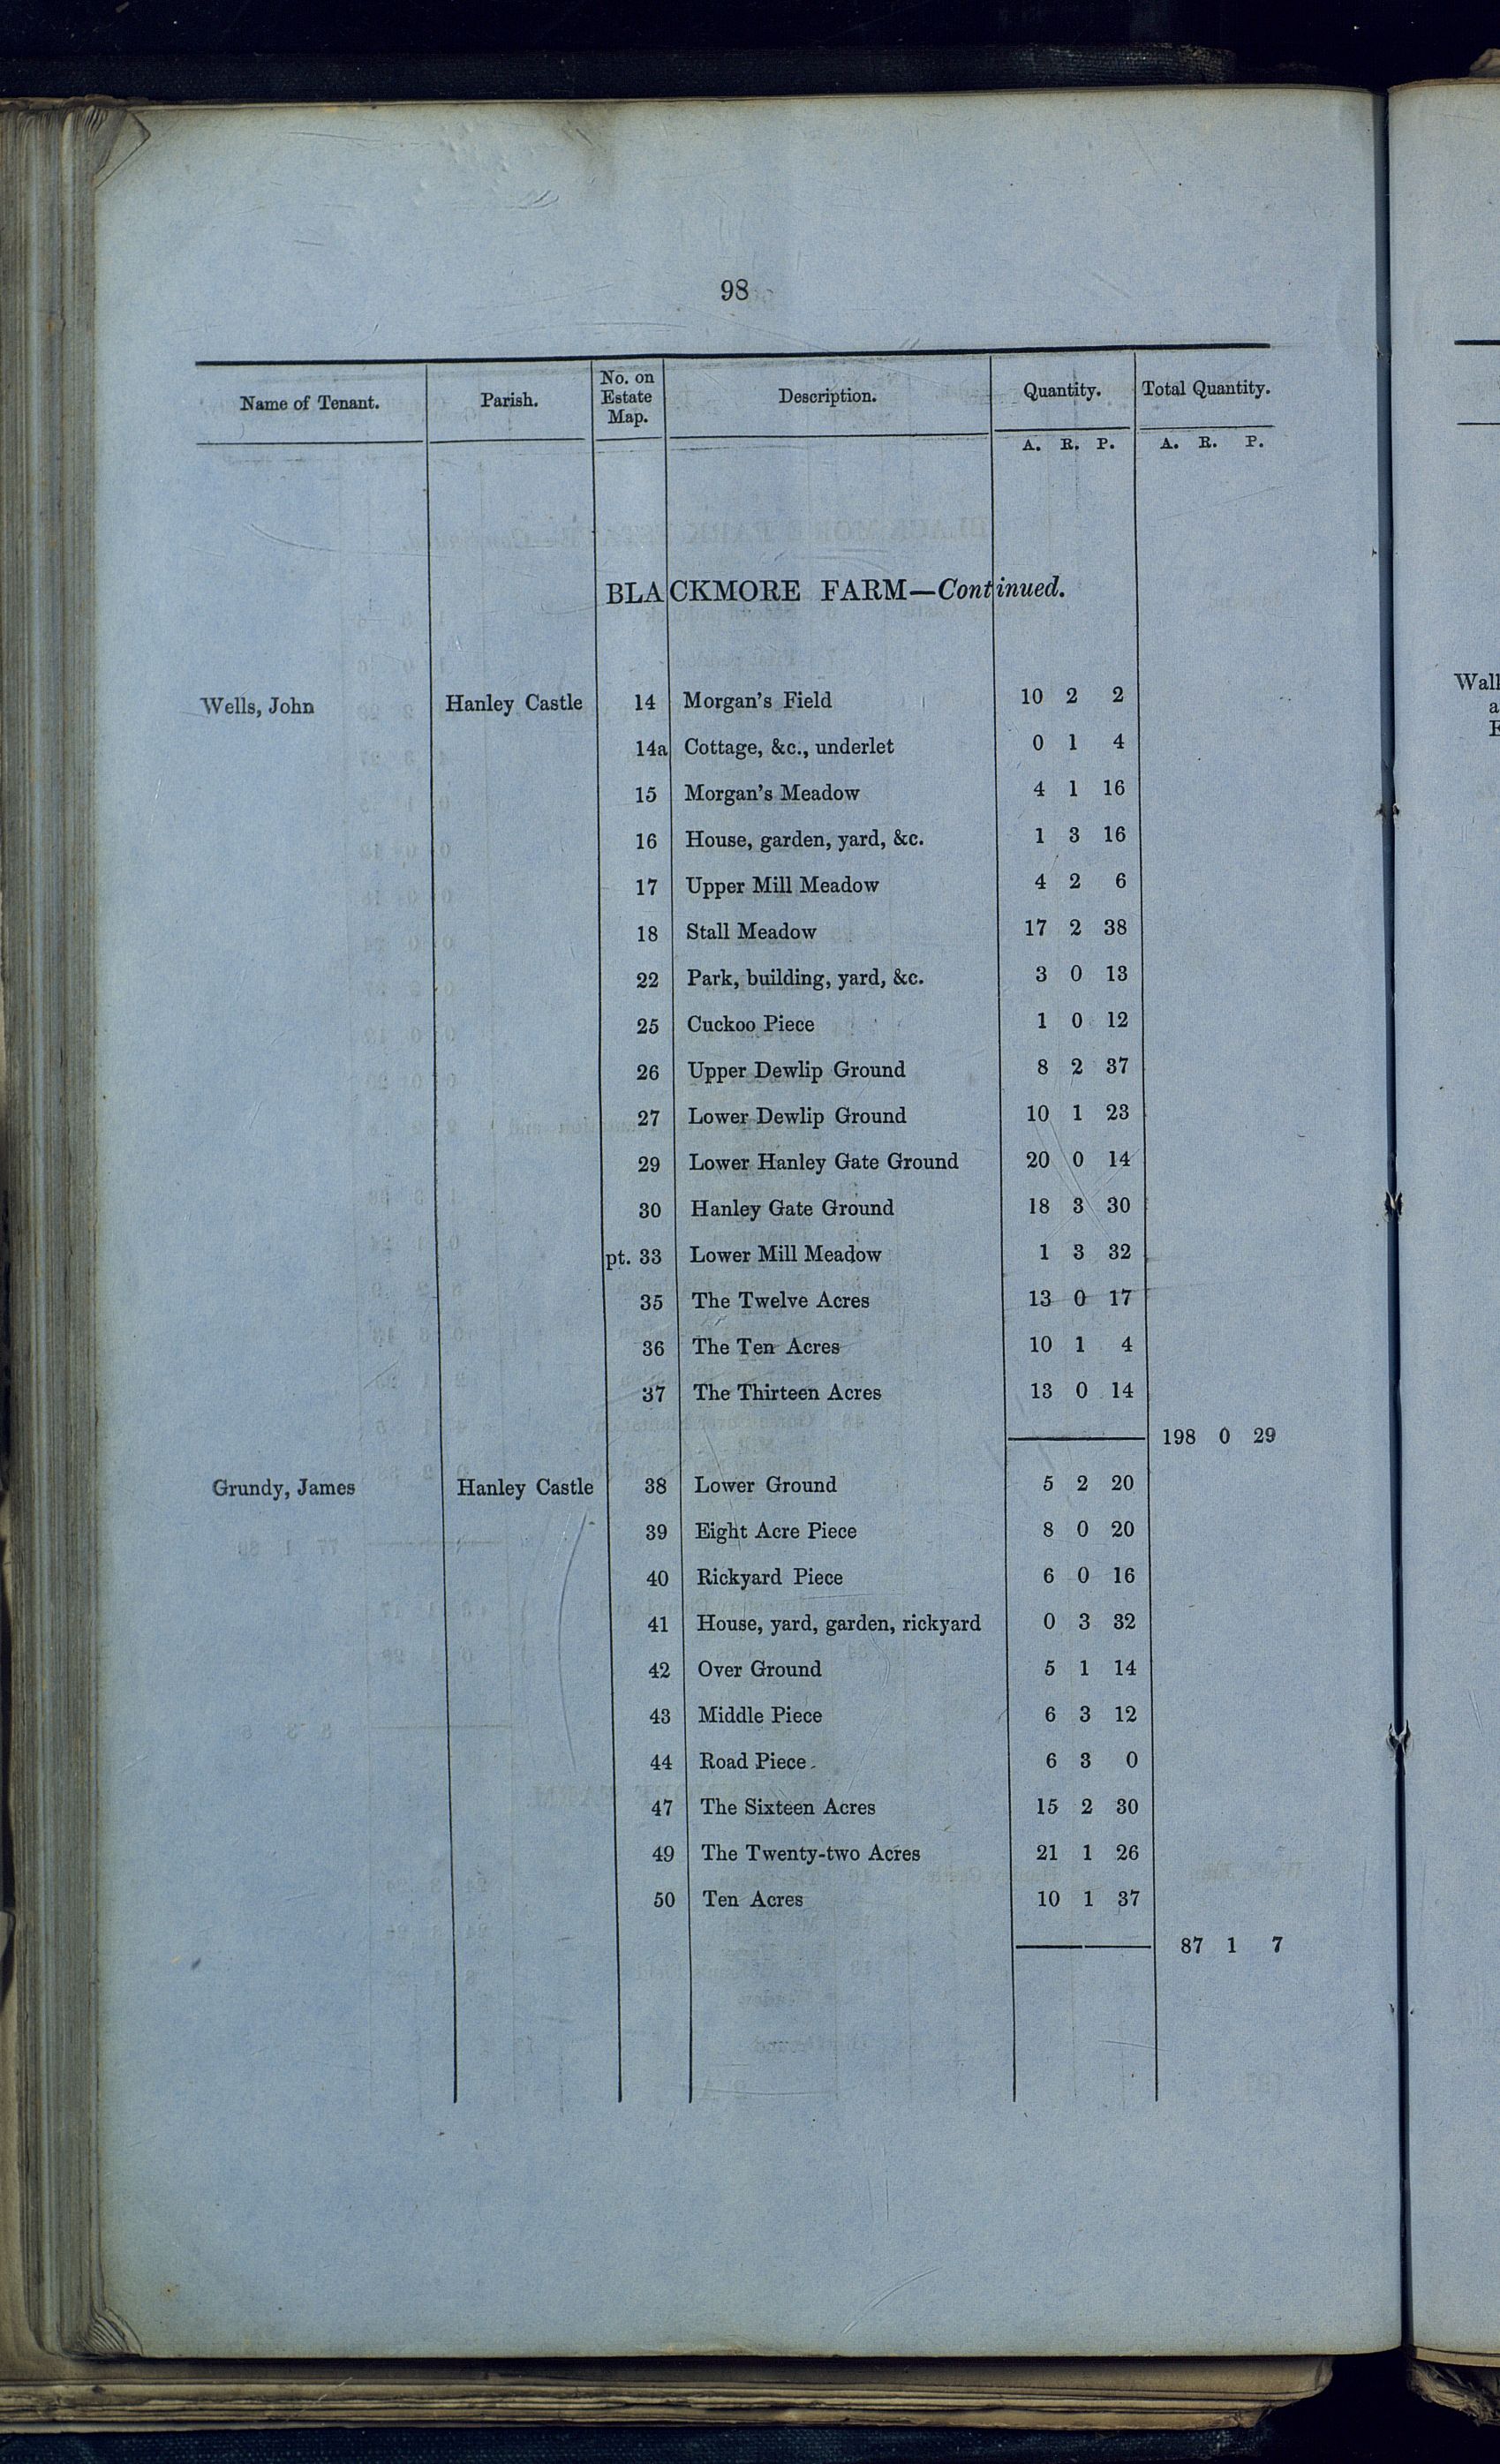 98
Name of Tenant. Parish. No. on Estate Map. Description. Quantity. Total Quantity.
A. R. P. A. R. P.
BLACKMORE FARM—Continued.
Wells, John Hanley Castle 14 Morgan's Field 10 2 2
14a Cottage, &c., underlet 0 1 4
15 Morgan's Meadow 4 1 16
16 House, garden, yard, &c. 1 3 16
17 Upper Mill Meadow 4 2 6
18 Stall Meadow 17 2 38
22 Park, building, yard, &c. 3 0 13
25 Cuckoo Piece 1 0 12
26 Upper Dewlip Ground 8 2 37
27 Lower Dewlip Ground 10 1 23
29 Lower Hanley Gate Ground 20 0 14
30 Hanley Gate Ground 18 3 30
pt. 33 Lower Mill Meadow 1 3 32
35 The Twelve Acres 13 0 17
36 The Ten Acres 10 1 4
37 The Thirteen Acres 13 0 14
198 0 29
Grundy, James Hanley Castle 38 Lower Ground 5 2 20
39 Eight Acre Piece 8 0 20
40 Rickyard Piece 6 0 16
41 House, yard, garden, rickyard 0 3 32
42 Over Ground 5 1 14
43 Middle Piece 6 3 12
44 Road Piece 6 3 0
47 The Sixteen Acres 15 2 30
49 The Twenty-two Acres 21 1 26
50 Ten Acres 10 1 37
87 1 7